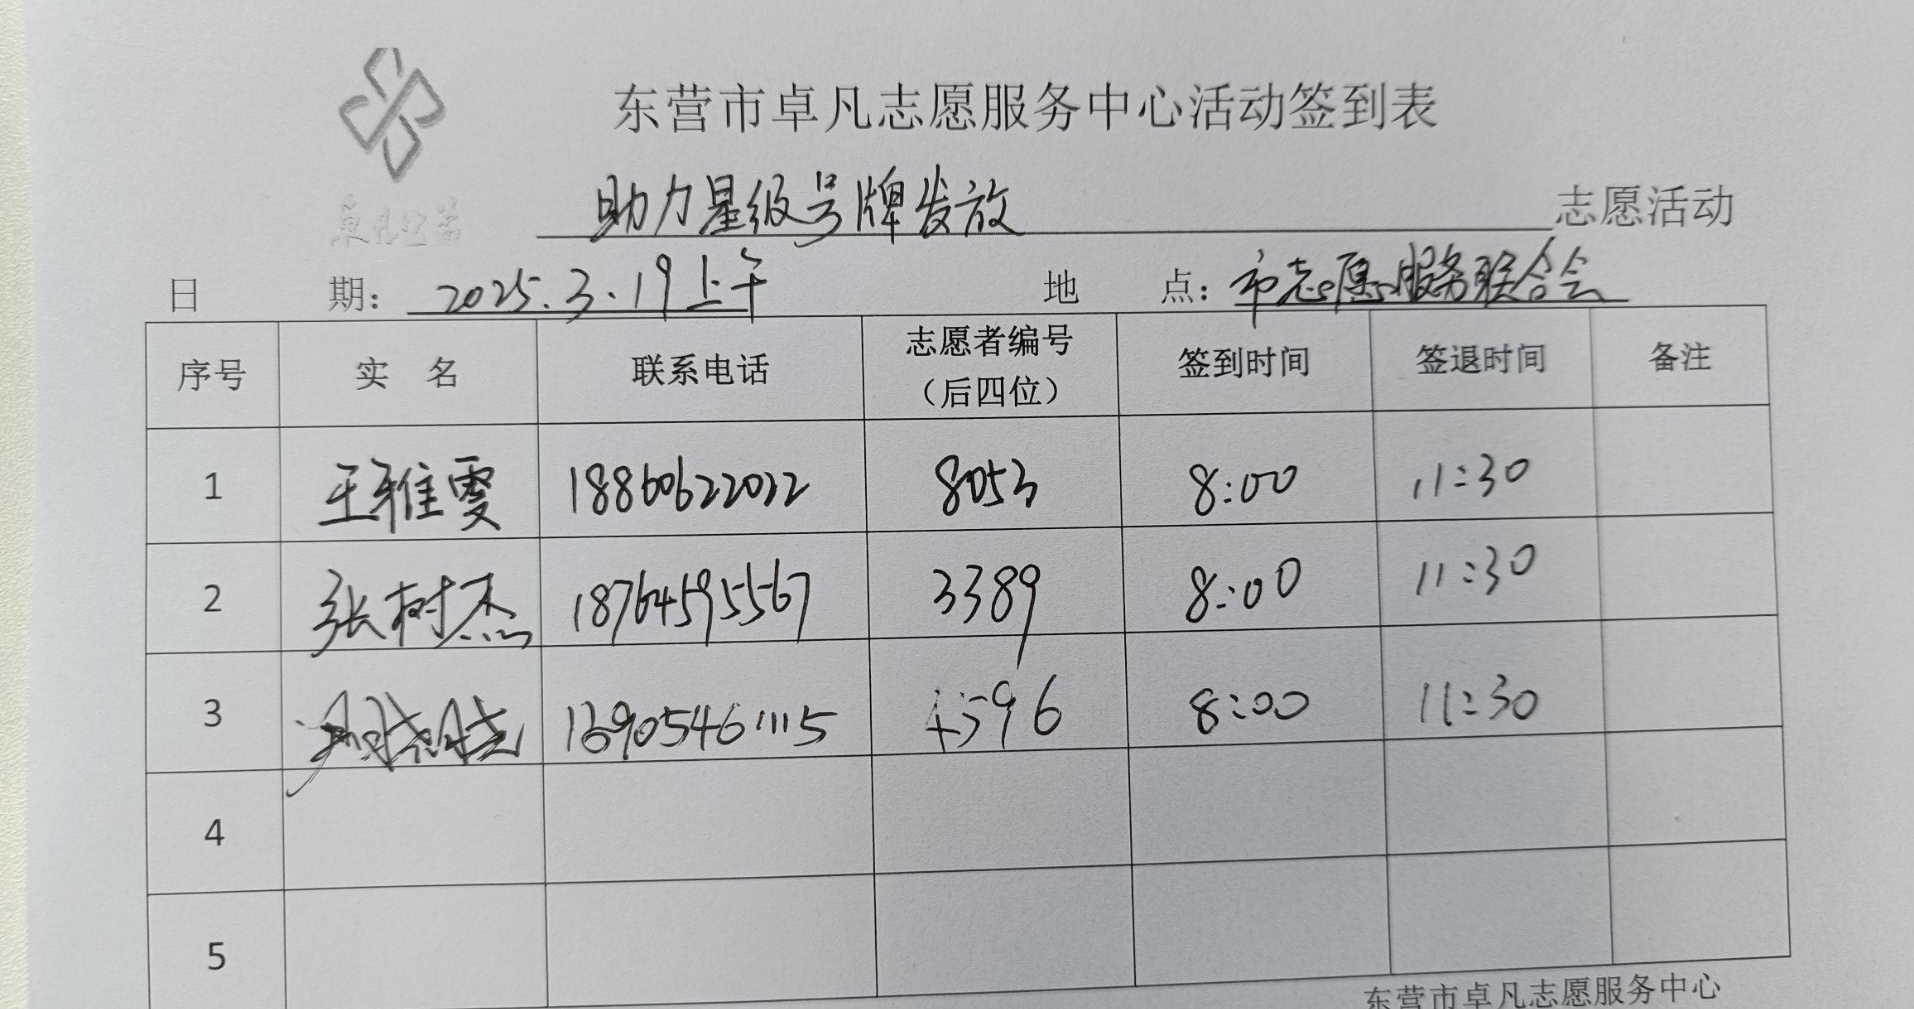 东营市卓凡志愿服务中心活动签到表
助力星级号牌发放 志愿活动
日 期：2025.3.19上午 地 点：市志愿服务联合会
序号 实 名 联系电话 志愿者编号（后四位） 签到时间 签退时间 备注
1 王雅雯 18860622022 8053 8:00 11:30
2 张树杰 18764595567 3389 8:00 11:30
3 8:00 11:30
4
5
东营市卓凡志愿服务中心